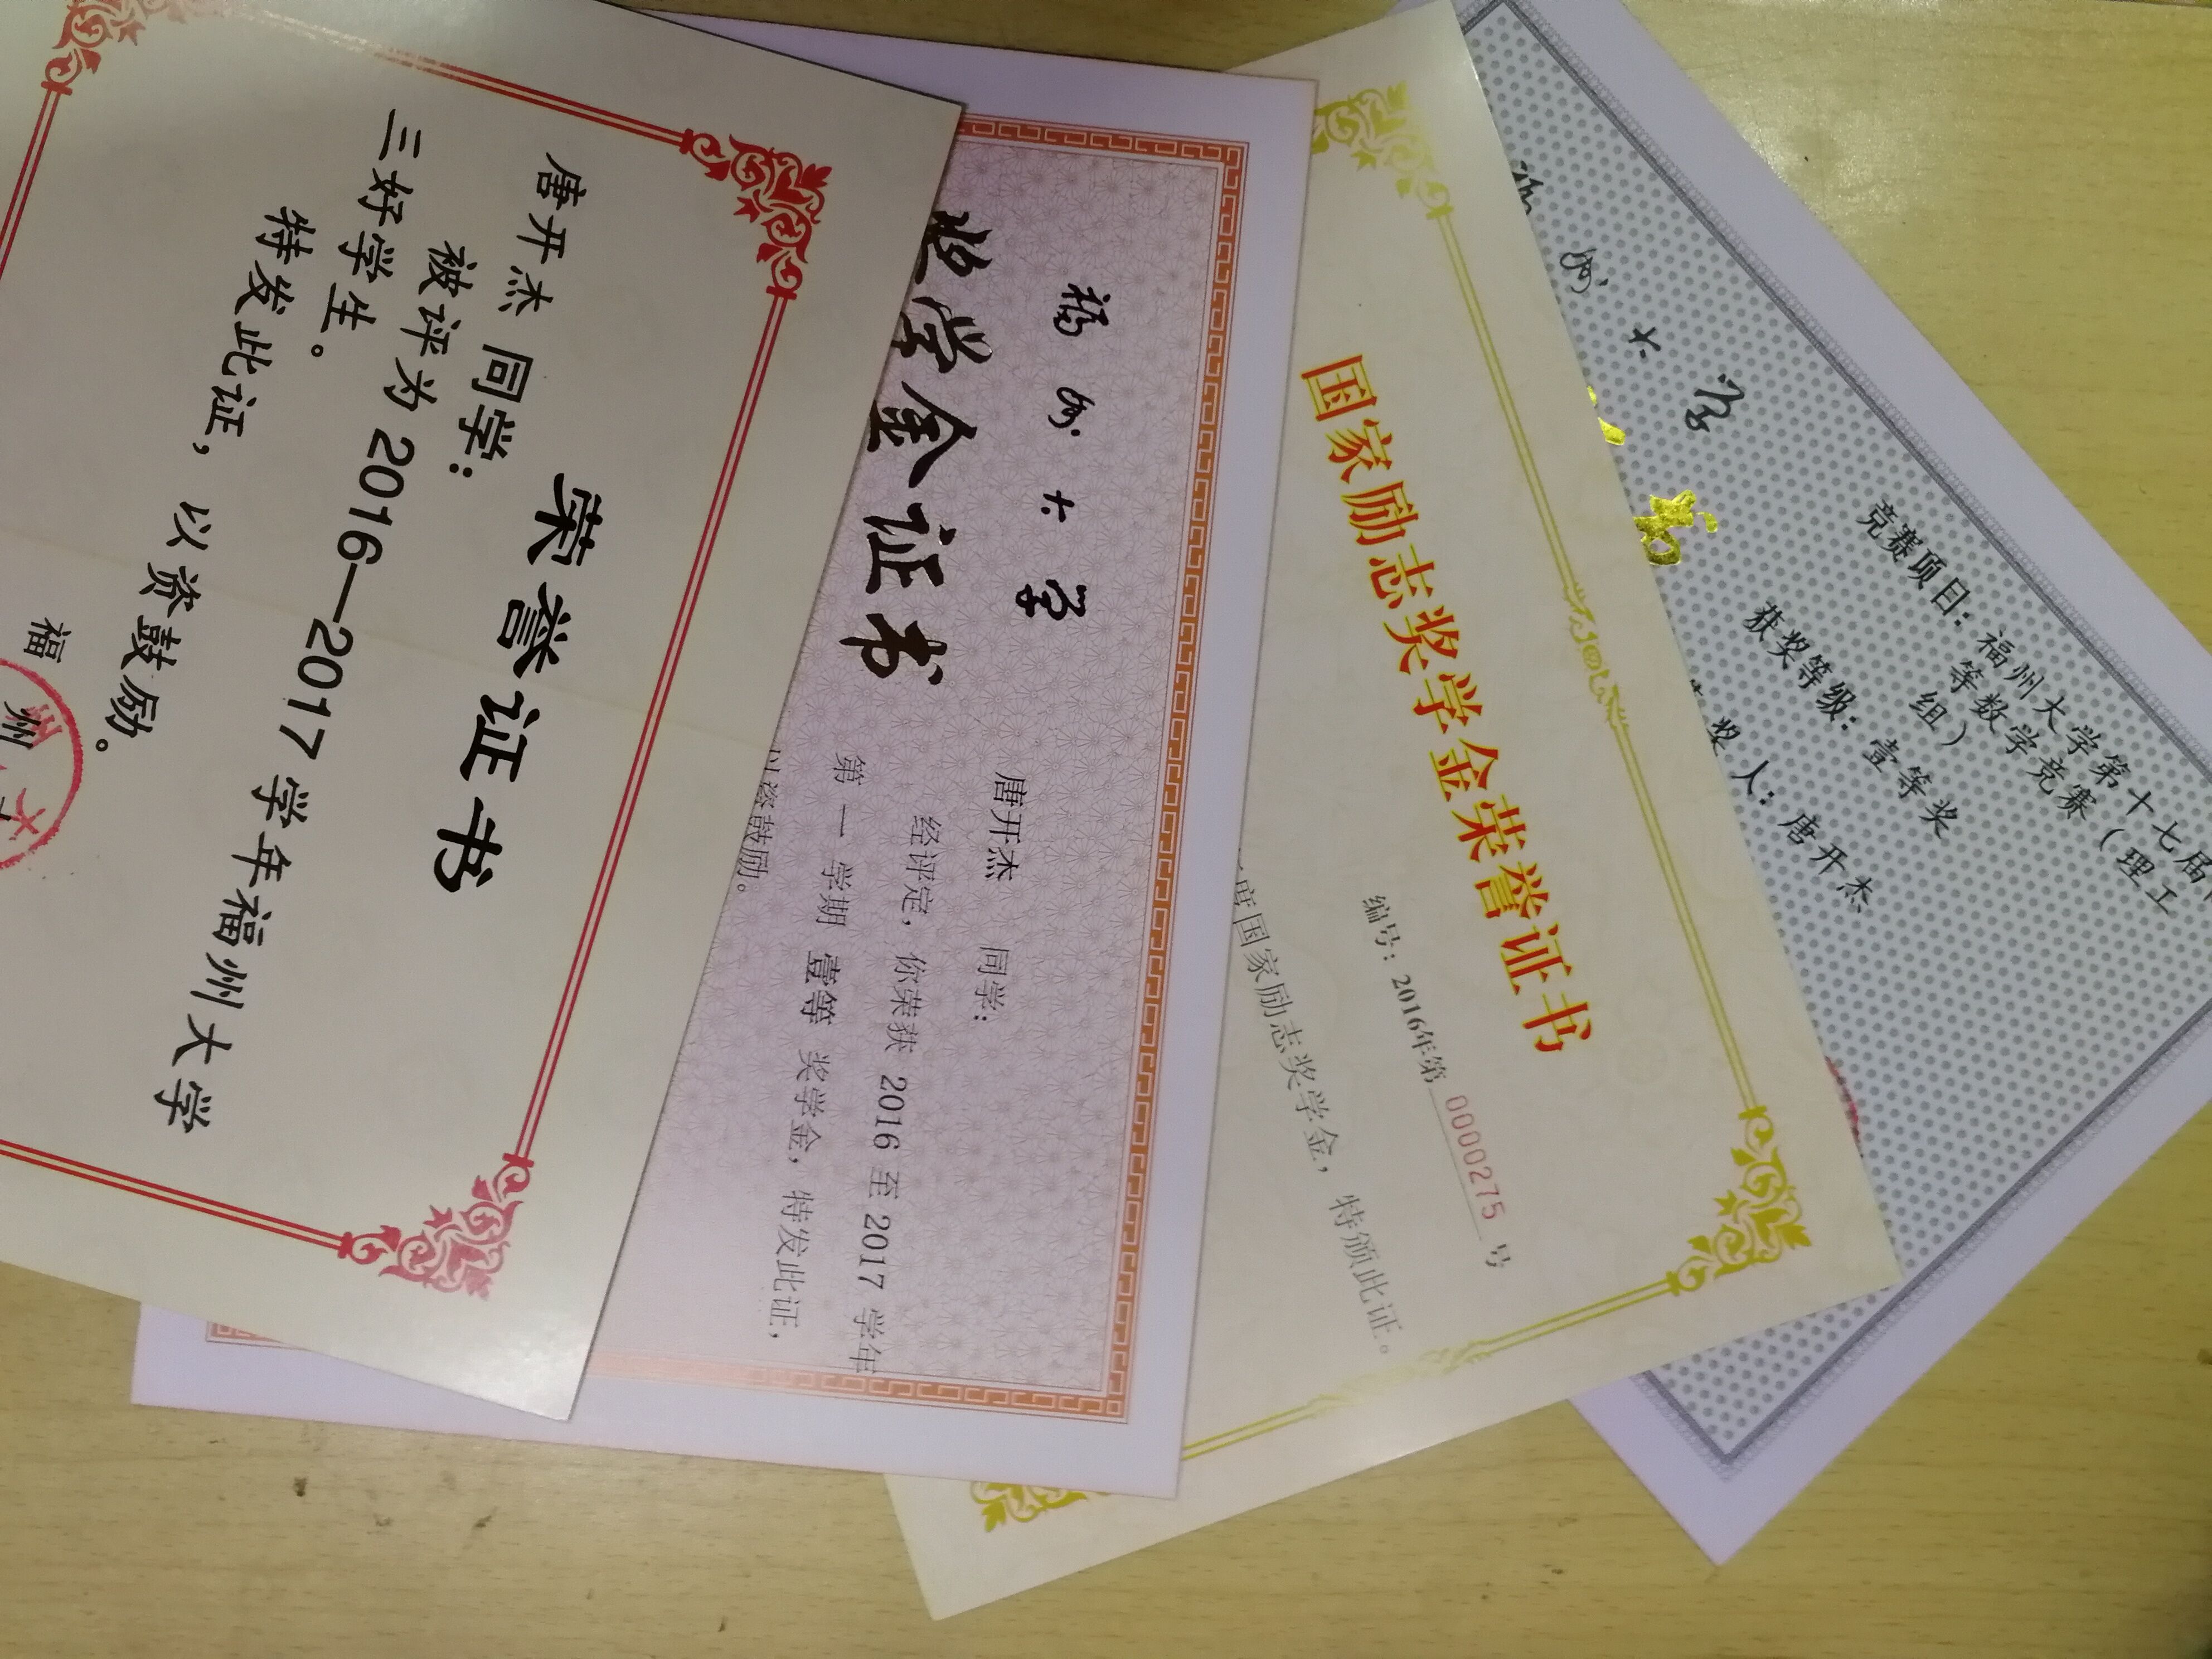 荣誉证书
唐开杰 同学：
被评为 2016—2017 学年福州大学
三好学生。
特发此证，以资鼓励。
福
州 大
福 州 大 学
奖学金证书
唐开杰 同学：
经评定，你荣获 2016 至 2017 学年
第 一 学期 壹等 奖学金，特发此证，
以资鼓励。
国家励志奖学金荣誉证书
编号：2016年第 0000275 号
度国家励志奖学金，特颁此证。
州 大 学
竞赛项目：福州大学第十七届
等数学竞赛（理工
组）
获奖等级：壹等奖
奖 人：唐开杰